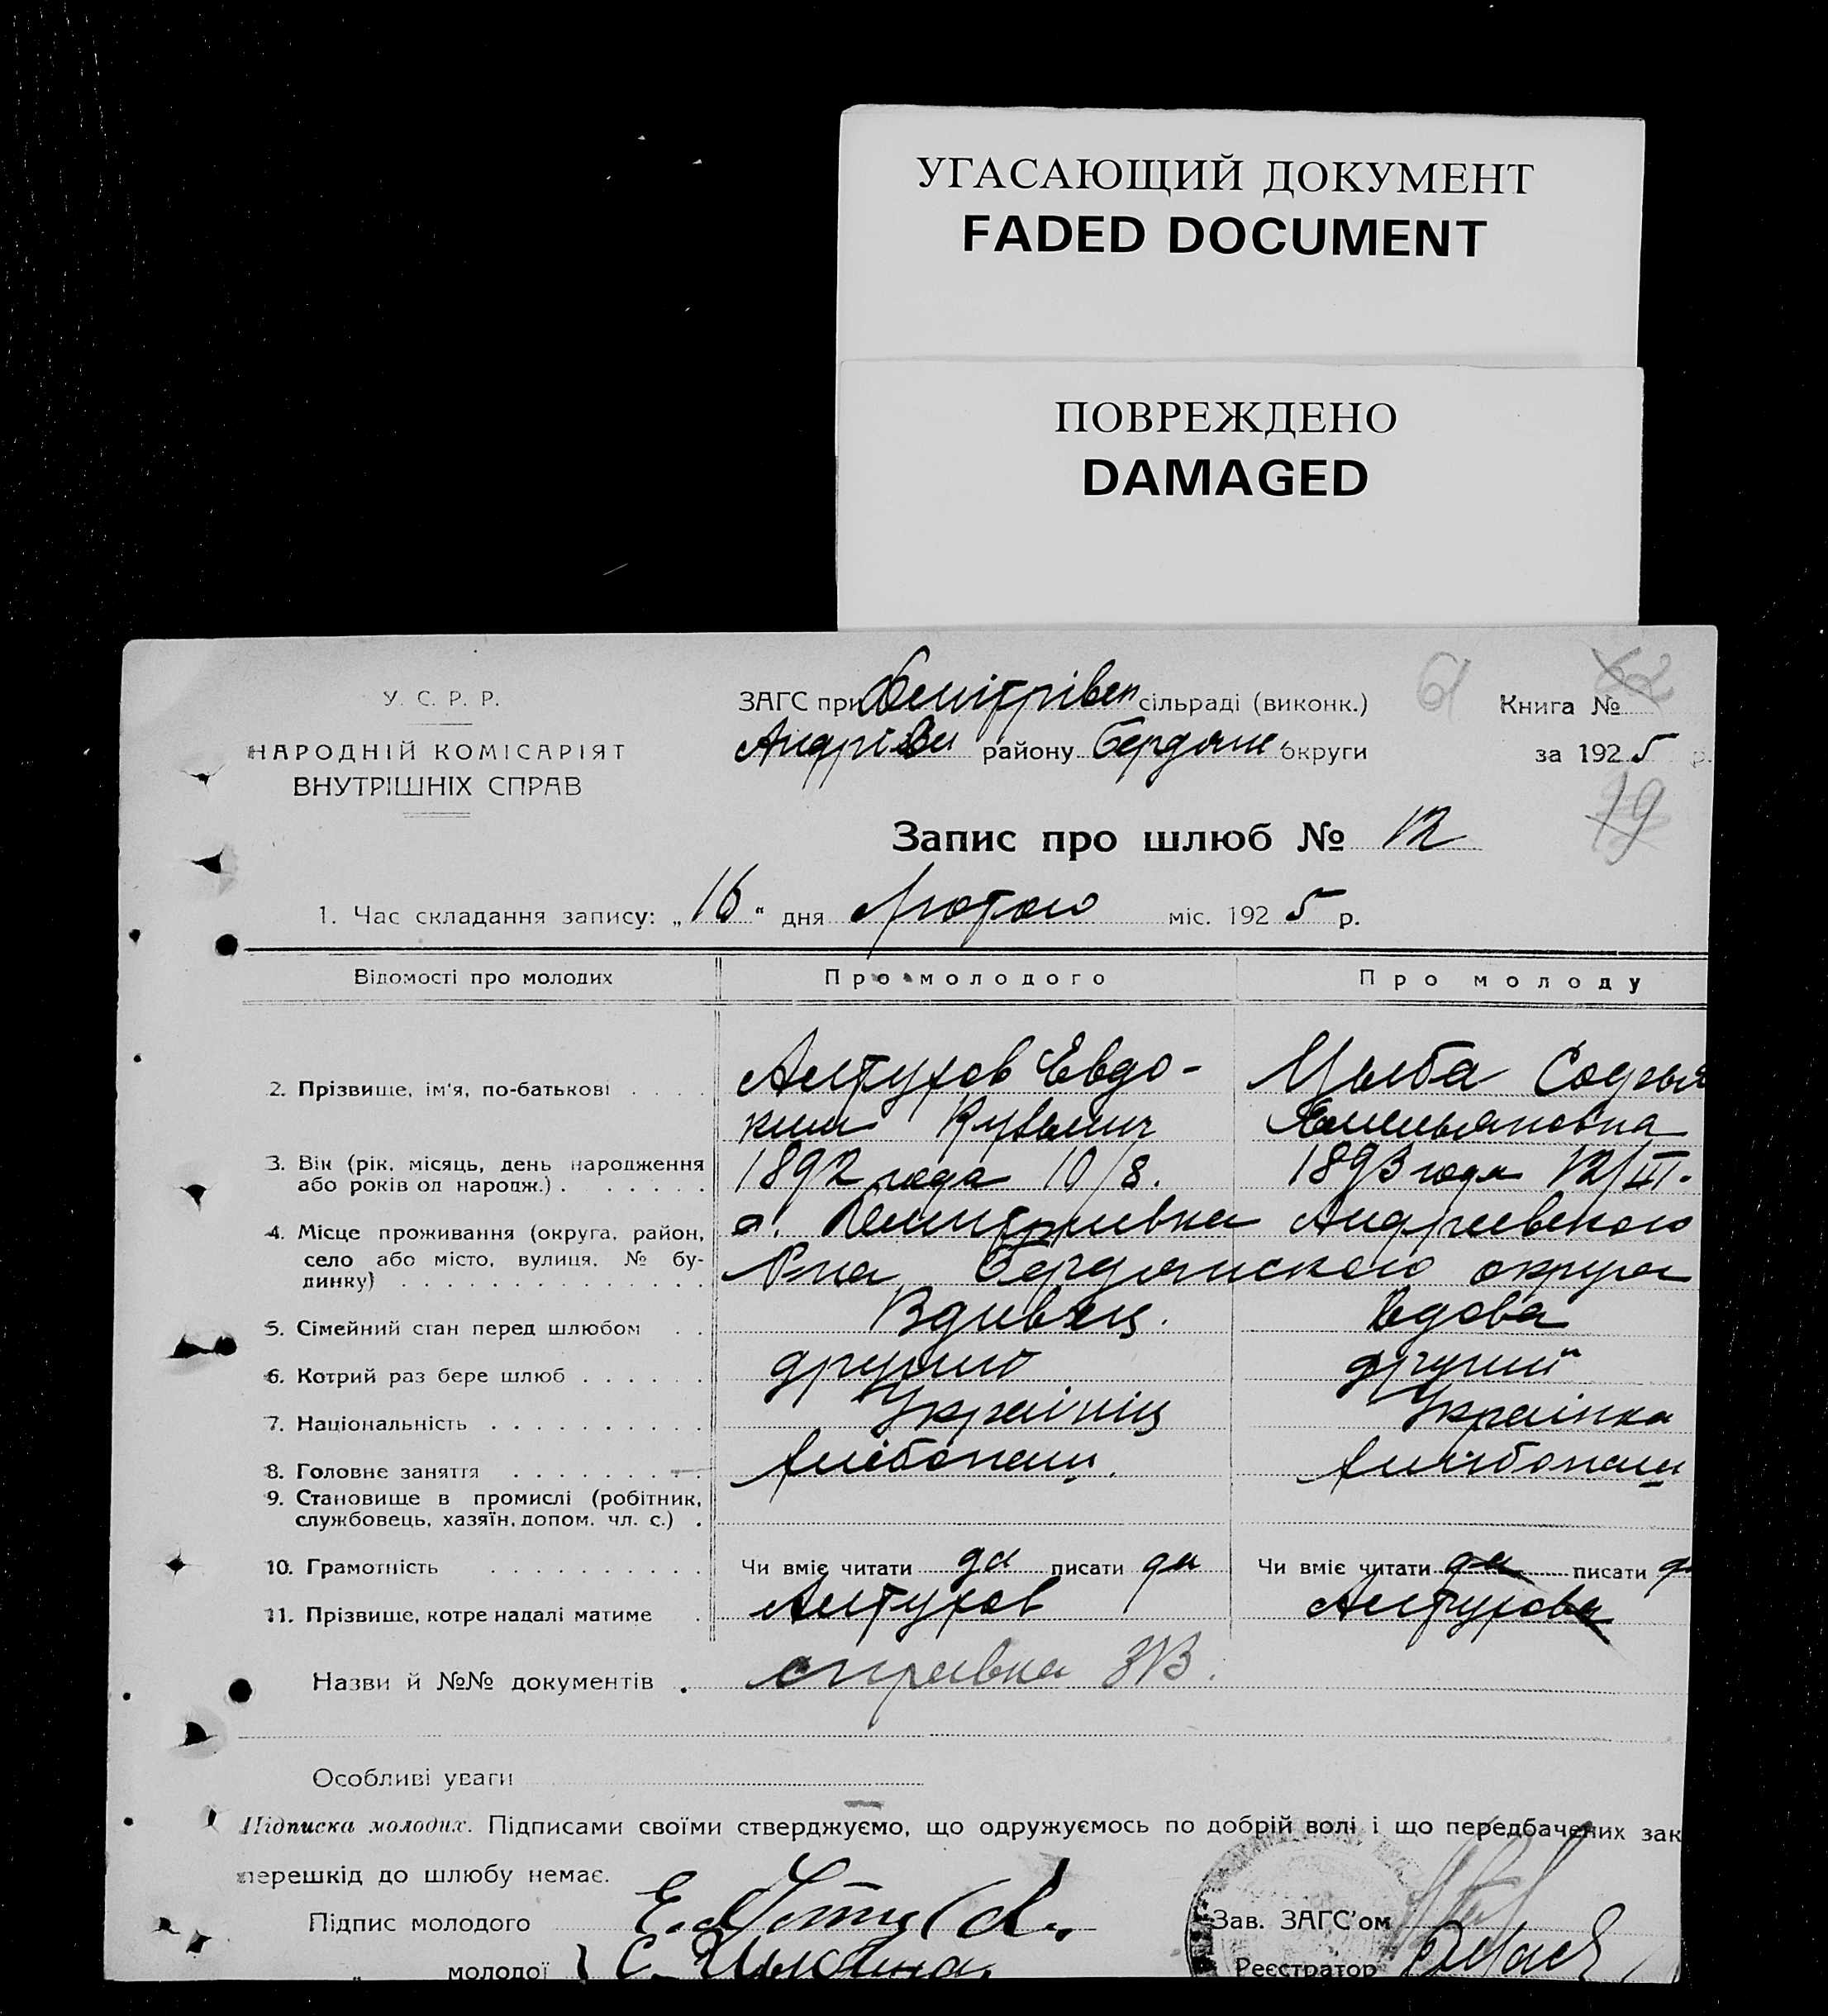 УГАСАЮЩИЙ ДОКУМЕНТ
FADED DOCUMENT
ПОВРЕЖДЕНО
DAMAGED
У. С. Р. Р.
НАРОДНІЙ КОМІСАРІЯТ
ВНУТРІШНІХ СПРАВ
ЗАГС при Демітрівен сільраді (виконк.)
району Бердянс округи
61
62
Книга №
за 1925 р.
19
Запис про шлюб № 12
1. Час складання запису: „16“ дня Лютого міс. 1925 р.
Відомості про молодих Про молодого Про молоду
2. Прізвище, ім'я, по-батькові Алтухов Евдо- Цыба Софья
ким Кузьмич Емельяновна
3. Вік (рік, місяць, день народження 1892 года 10/8. 1893 года 12/III.
або років од народж.)
4. Місце проживання (округа, район, с. Демитривка Андриевского
село або місто, вулиця, № бу- Р-на Бердянского округа
динку)
5. Сімейний стан перед шлюбом Вдивец. вдова
6. Котрий раз бере шлюб другий
7. Національність Украінец Украінка
8. Головне заняття хлібопаш. хлібопаш
9. Становище в промислі (робітник,
службовець, хазяїн, допом. чл. с.)
10. Грамотність Чи вміє читати да писати да Чи вміє читати да писати да
11. Прізвище, котре надалі матиме Алтухов Алтухова
Назви й №№ документів справка
Особливі уваги
Підписка молодих. Підписами своїми стверджуємо, що одружуємось по добрій волі і що передбачених зак
перешкід до шлюбу немає.
Підпис молодого Е.
Зав. ЗАГС'ом
„ молодої С.
Реєстратор